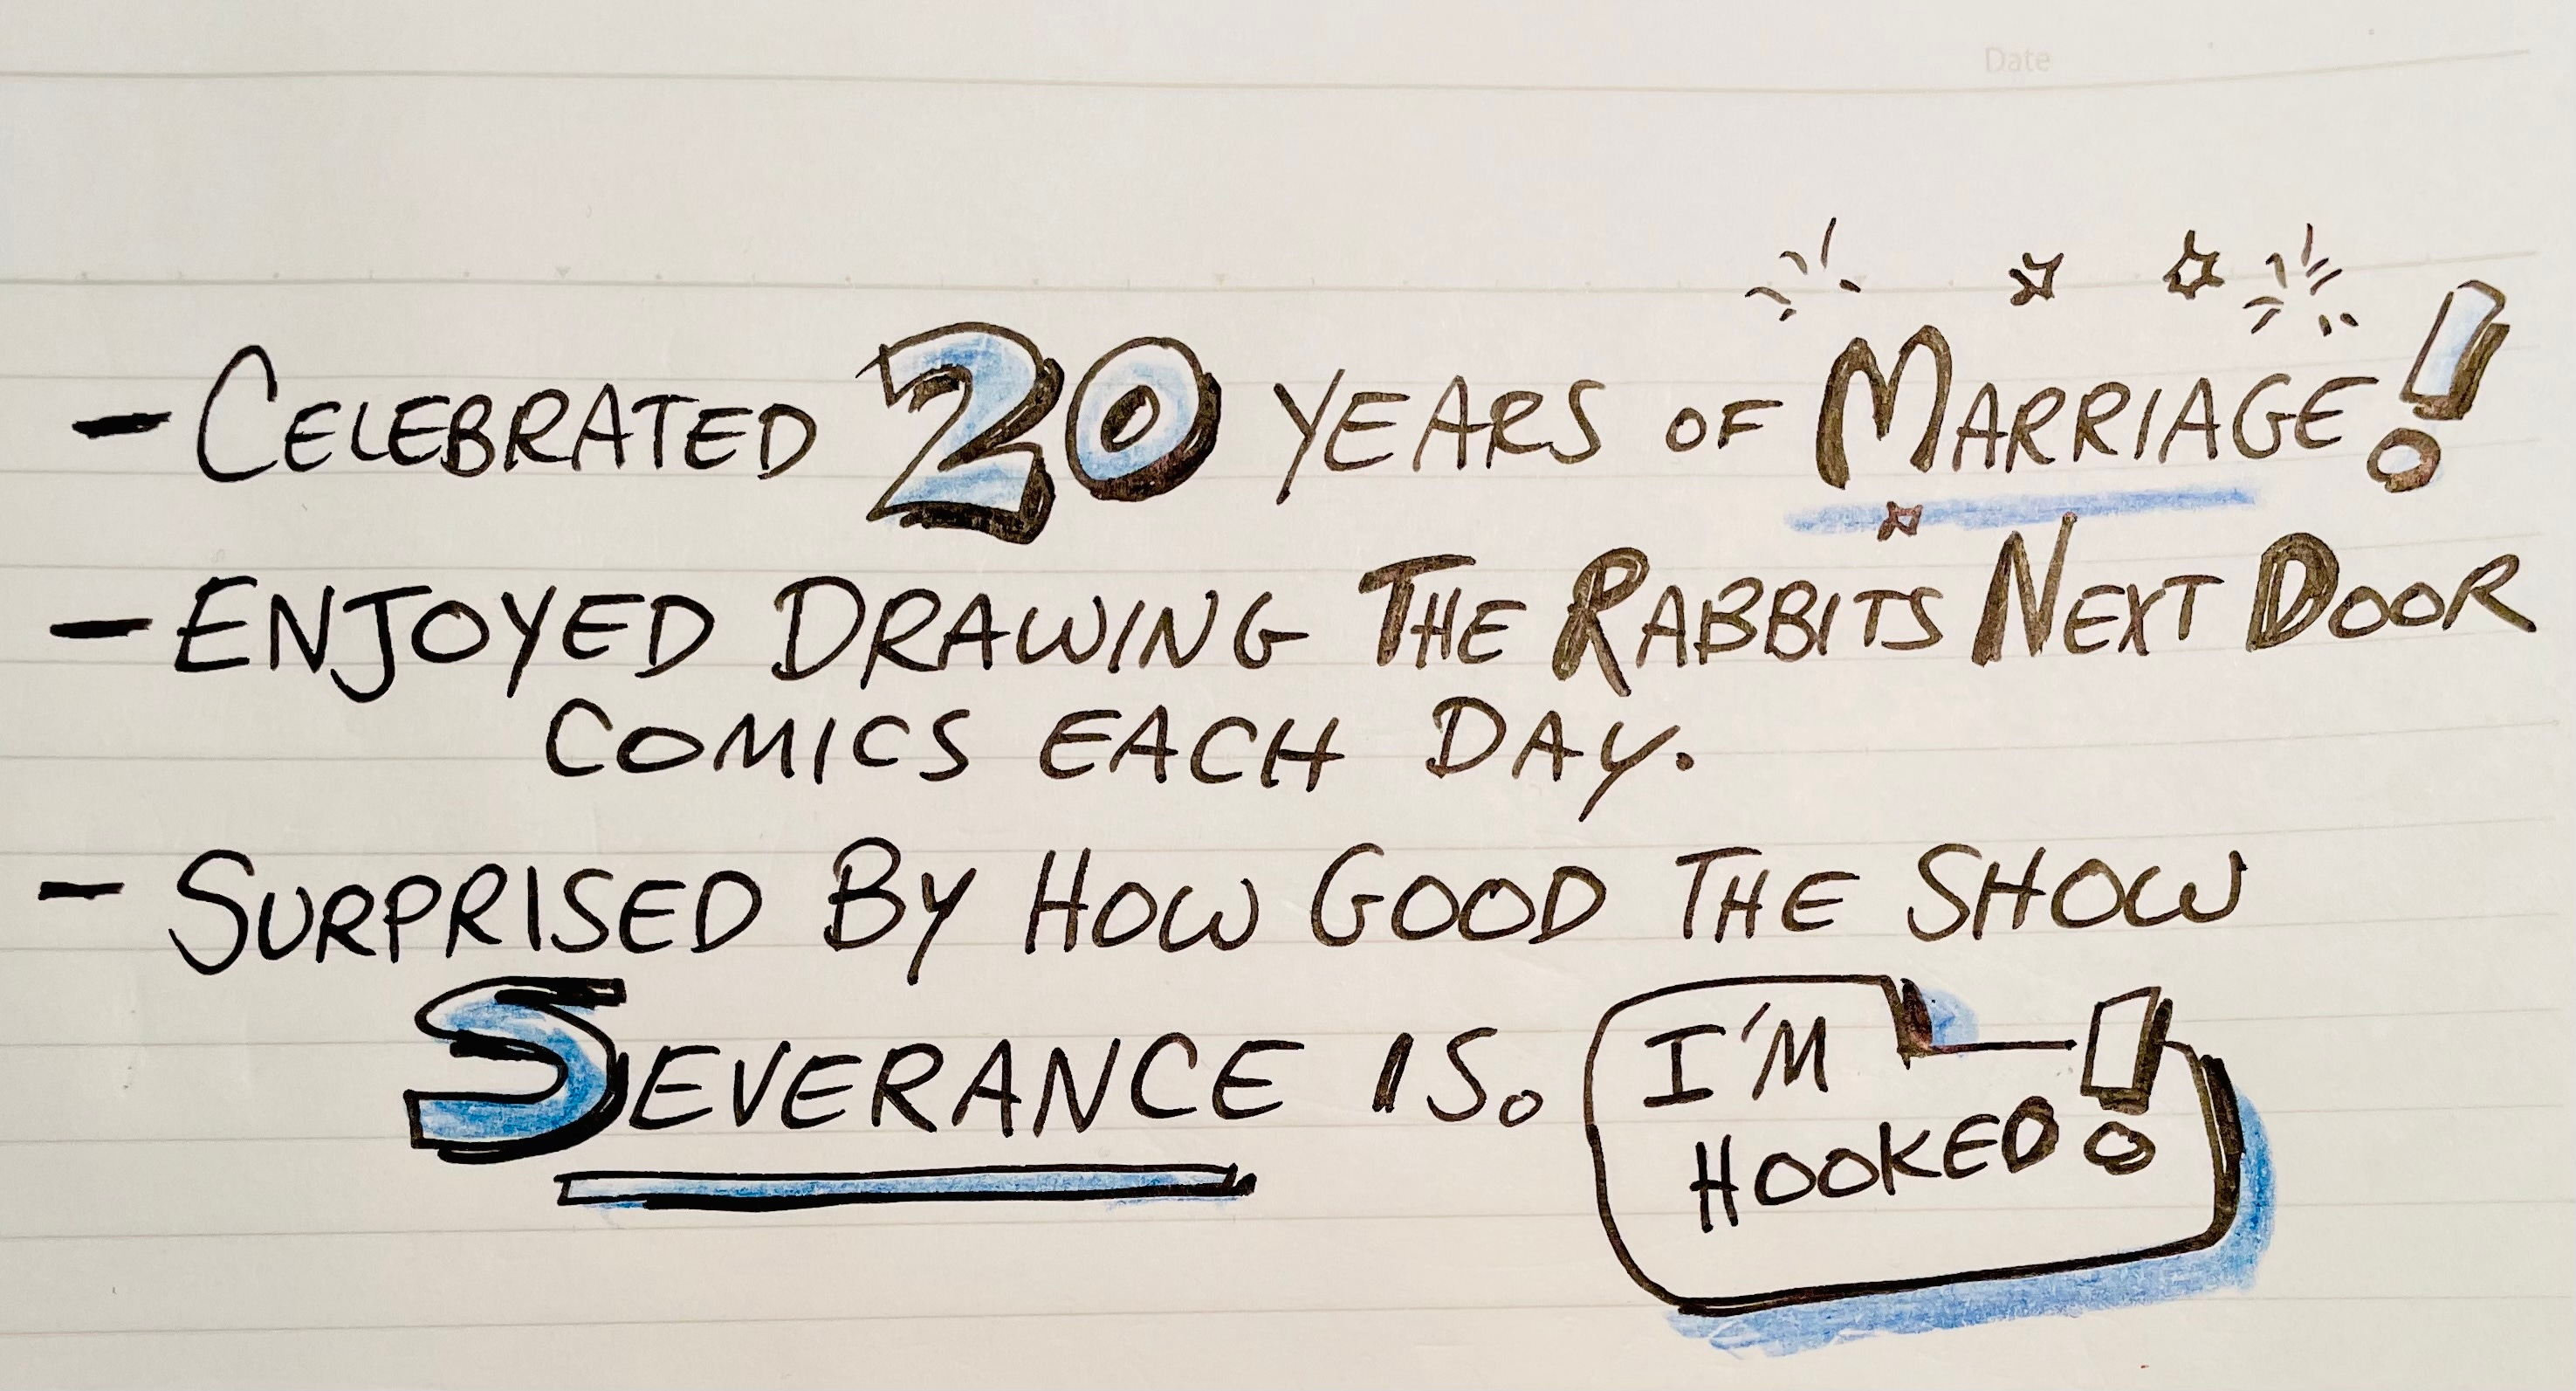 Date
- CELEBRATED 20 YEARS OF MARRIAGE!
- ENJOYED DRAWING THE RABBITS NEXT DOOR
COMICS EACH DAY.
- SURPRISED BY HOW GOOD THE SHOW
SEVERANCE IS.
I'M
HOOKED!